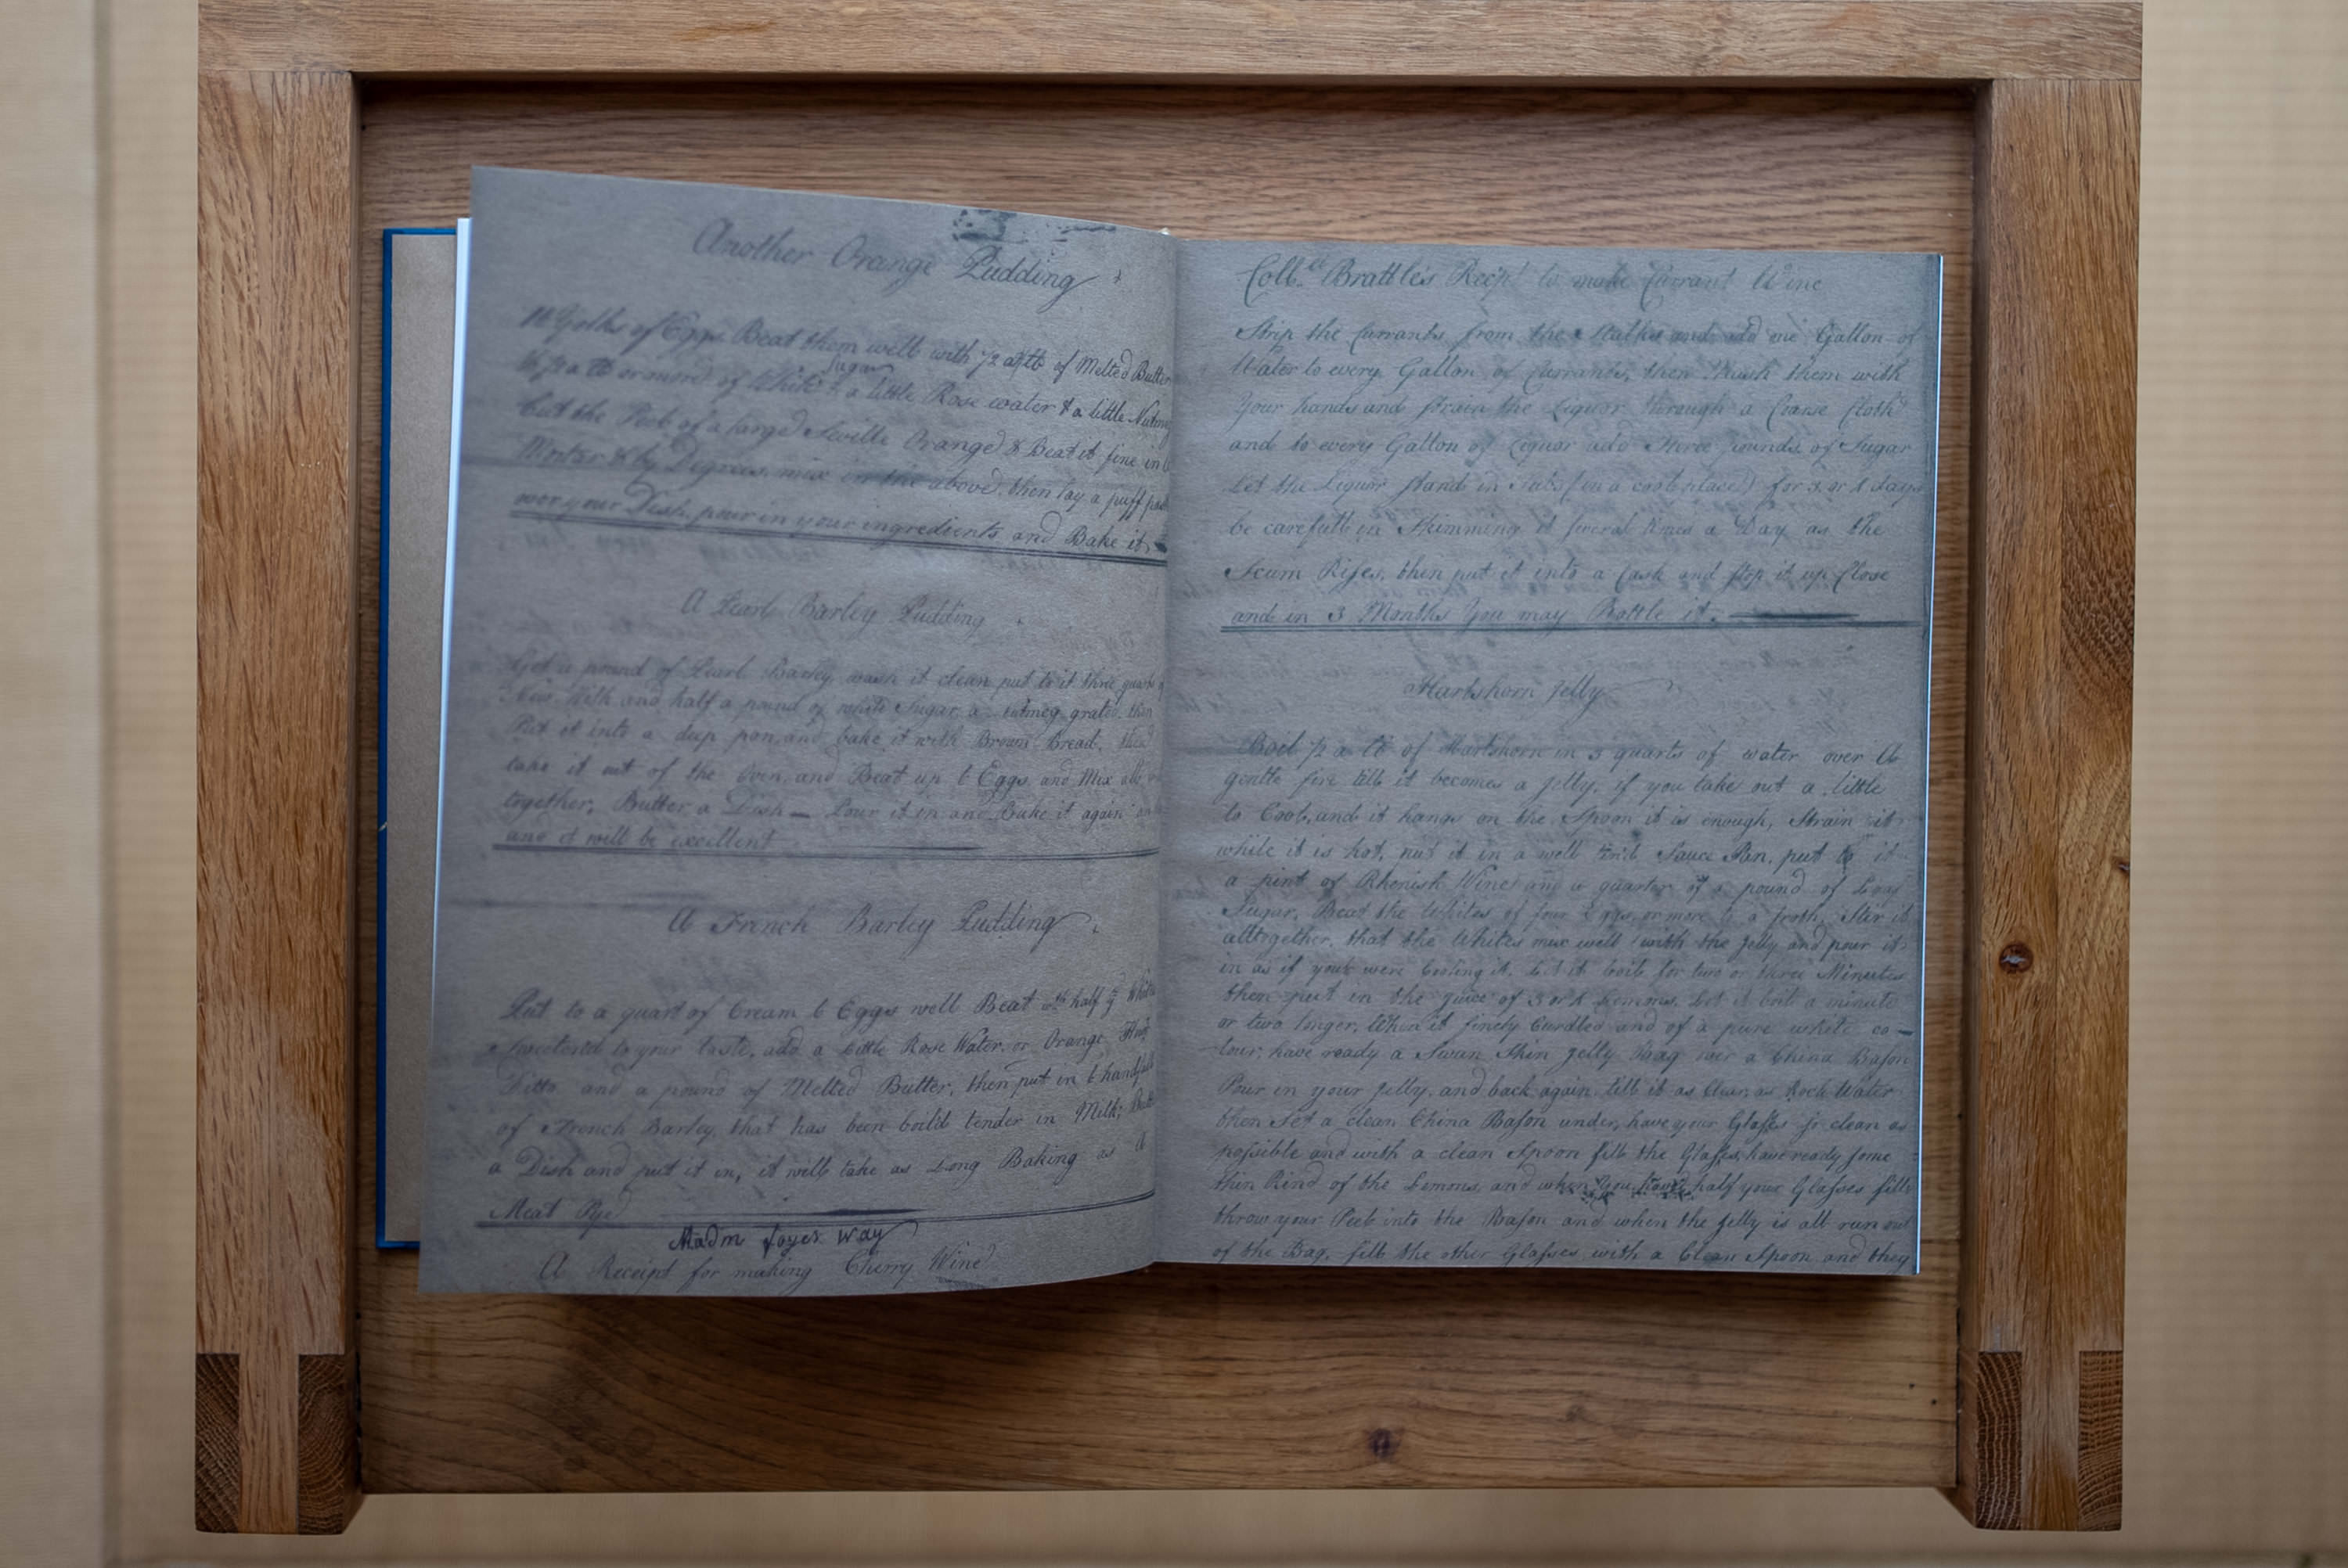 Another Orange
Pudding
Yolks of Eggs Beat them well with 1/2 a lb of Melted Butter
Sugar
a lb or more of White & a little Rose water & a little Nutmeg
Cut the Peel of a large Seville Orange & Beat it fine in
Mortar & by Degrees mix in the above, then lay a puff
over your Dish, pour in your ingredients and Bake it
A Pearl Barley Pudding
Get a pound of Pearl Barley wash it clean put to it three quarts
New Milk and half a pound of white Sugar a nutmeg grated, then
Put it into a deep pan, and bake it with Brown Bread, then
take it out of the Oven, and Beat up 6 Eggs, and Mix all
together, Butter a Dish — Pour it in and Bake it again
and it will be excellent
A French Barley Pudding
Put to a quart of Cream 6 Eggs well Beat wth half ye Whites
sweetened to your taste, add a Little Rose Water, or Orange
Ditto and a pound of Melted Butter, then put in 6 handfulls
of French Barley, that has been boild tender in Milk;
a Dish and put it in, it will take as Long Baking as a
Meat Pye
Madm Joyes Way
A Receipt for making Cherry Wine
Coll. Brattle's Recipt to make Currant Wine
Strip the Currants from the Stalks and add one Gallon of
Water to every Gallon of Currants, then Mash them with
Your hands and strain the Liquor through a Coarse Cloth
and to every Gallon of Liquor add Three pounds of Sugar
Let the Liquor stand in Tubs (in a cool place) for 3 or 4 days
be carefull in Skimming it several times a Day as the
Scum Rises, then put it into a Cask and stop it up Close
and in 3 Months You may Bottle it.
Hartshorn Jelly
Boil 1/2 a lb of Hartshorn in 3 quarts of water over a
gentle fire till it becomes a Jelly, if you take out a little
to Cool, and it hangs on the Spoon it is enough, Strain it
while it is hot, put it in a well tin'd Sauce Pan, put to it
a pint of Rhenish Wine and a quarter of a pound of Loaf
Sugar, Beat the Whites of four Eggs, or more to a froth, Stir it
alltogether, that the Whites mix well with the Jelly and pour it
in as if you were Cooling it. Let it boil for two or three Minutes
then put in the juice of 3 or 4 Lemmons. Let it boil a minute
or two longer, When it finely Curdled and of a pure white co-
lour; have ready a Swan Skin Jelly Baag over a China Bason
Pour in your Jelly, and back again, till it as Clear as Rock Water
then Set a clean China Bason under, have your Glasses so clean as
possible and with a clean Spoon fill the Glasses, have ready some
thin Rind of the Lemmons, and when You have half your Glasses fill'd
throw your Peel into the Bason and when the Jelly is all run out
of the Bag, fill the other Glasses with a Clean Spoon and they